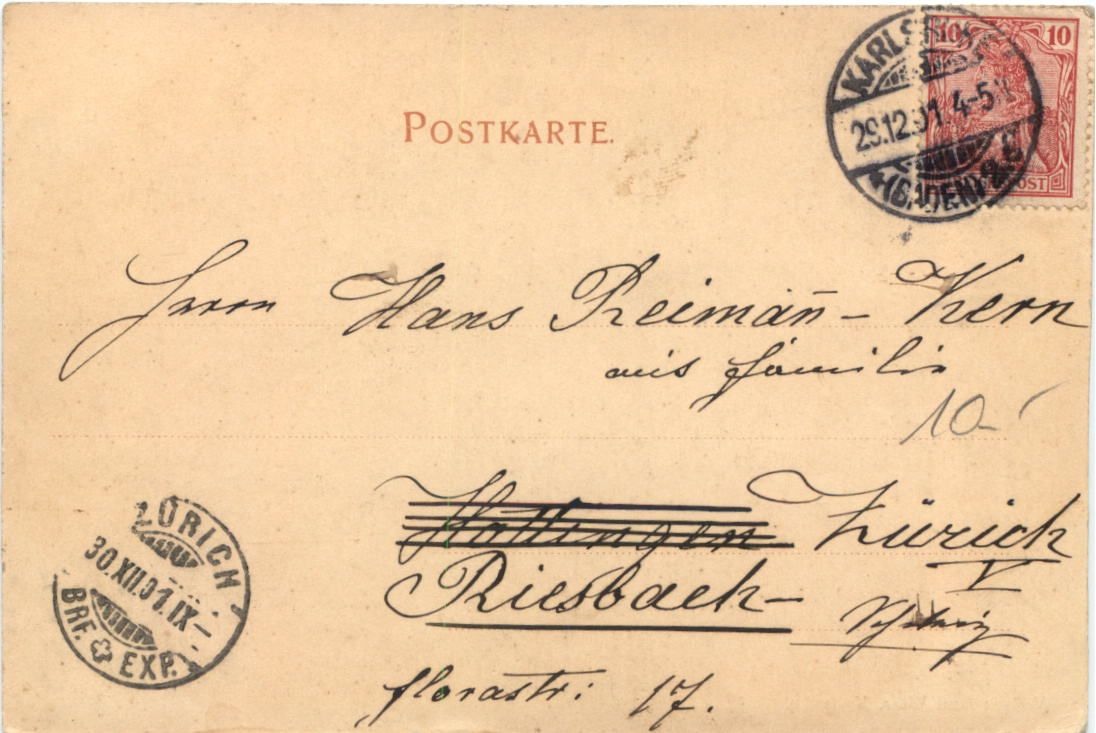 POSTKARTE.
10 10
KARLSRUHE
29.12.01. 4-5N
(BADEN)
POST
Herrn Hans Reimañ - Kern
nis familie
10.-
Hottingen Zürich
V
Riesbach - Schweiz
florastr: 17.
ZÜRICH
30.XII.01.IX-
BRF. EXP.